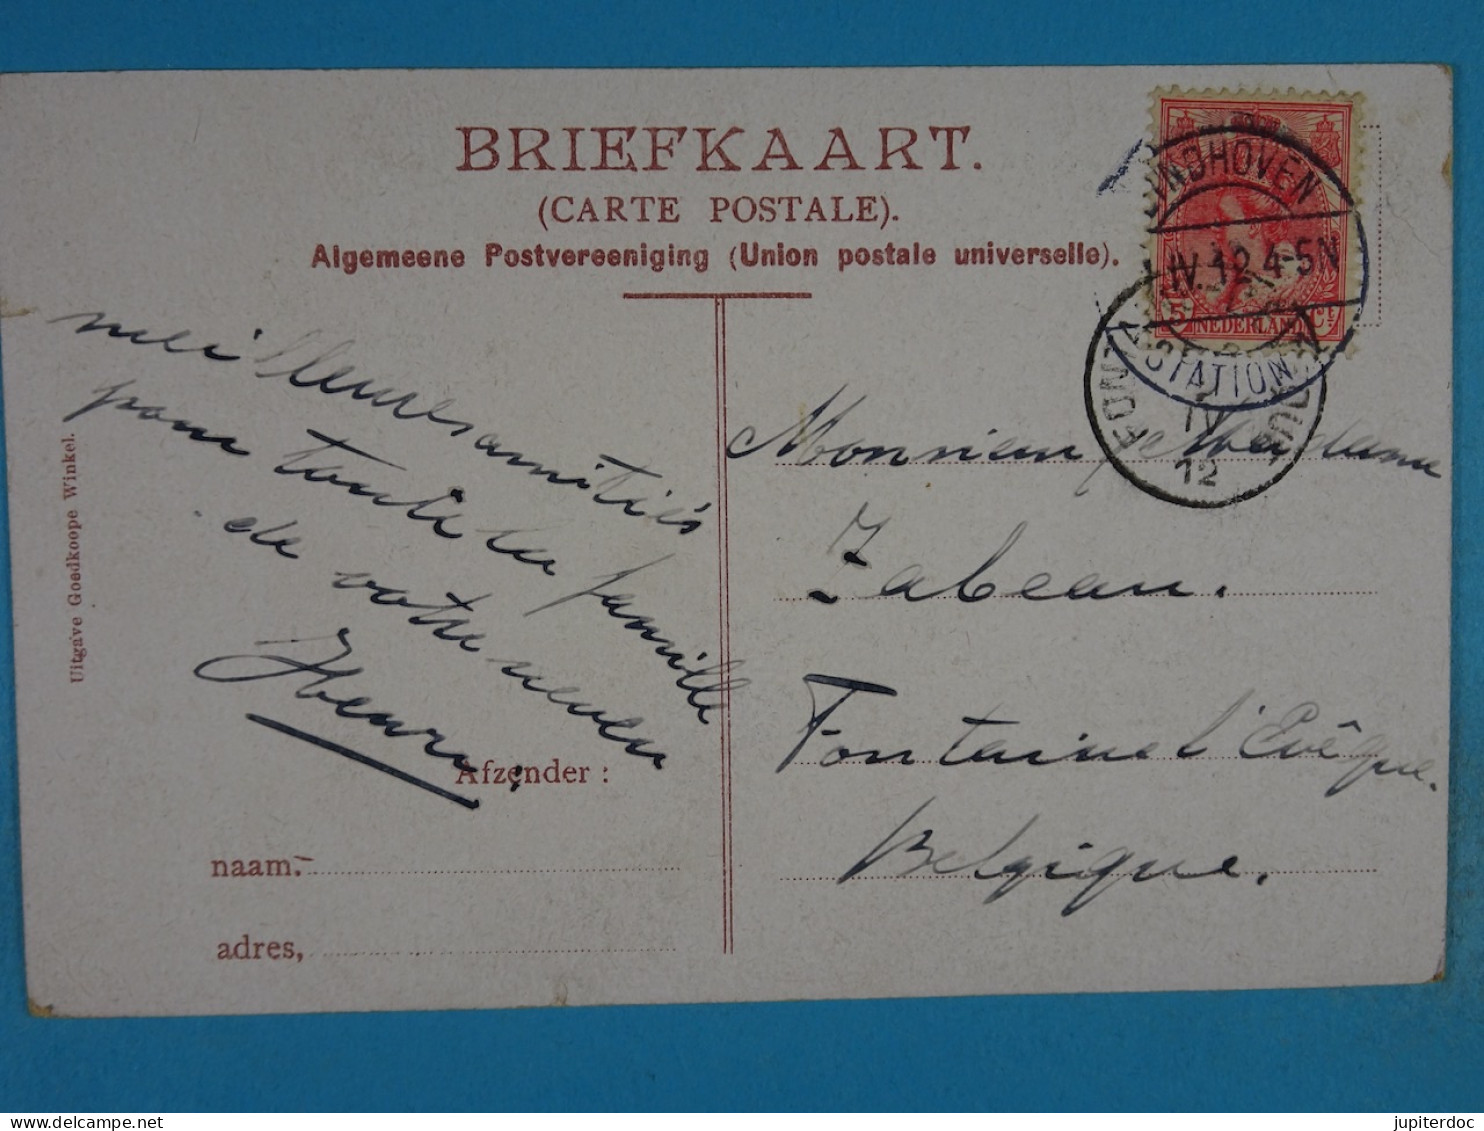 BRIEFKAART.
(CARTE POSTALE).
Algemeene Postvereeniging (Union postale universelle).
EINDHOVEN
IV.12 4-5N
STATION
5 Ct
NEDERLAND
FONTA
IV
12
meilleures amitiés
pour toute la famille
de votre neveu
Henri
Monsieur & Madame
Zabeau.
Fontaine l'Evêque.
Belgique.
Afzender:
naam:
adres,
Uitgave Goedkoope Winkel.
jupiterdoc